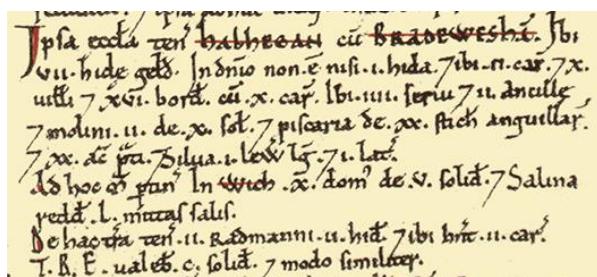 Ipsa eccła ten͛ HALHEGAN cū BRADEWESHĀ. Ibi
.vii. hidę geld̄. In dnīo non .ē nisi .i. hida. ⁊ ibi .ii. car͛. ⁊ x.
uiłłi ⁊ xvi. bord̄. cū .x. car͛. Ibi .iiii. serui ⁊ ii. ancillę
⁊ molini .ii. de .x. soł. ⁊ piscaria de .xx. stich anguillar͛.
⁊ xx. āc p̄ti. ⁊ Silua .i. lew̄ lḡ. ⁊ i. lat͛.
Ad hoc m̄ ptin͛ In Wich .x. dom͛ de .v. solid̄. ⁊ Salina
redd̄ .L. mittas salis.
De hac t͛ra ten͛ .ii. Radmanni .ii. hid̄. ⁊ ibi hn̄t .ii. car͛.
T. R. E. ualeb̄. c. solid̄. ⁊ modo similiter.